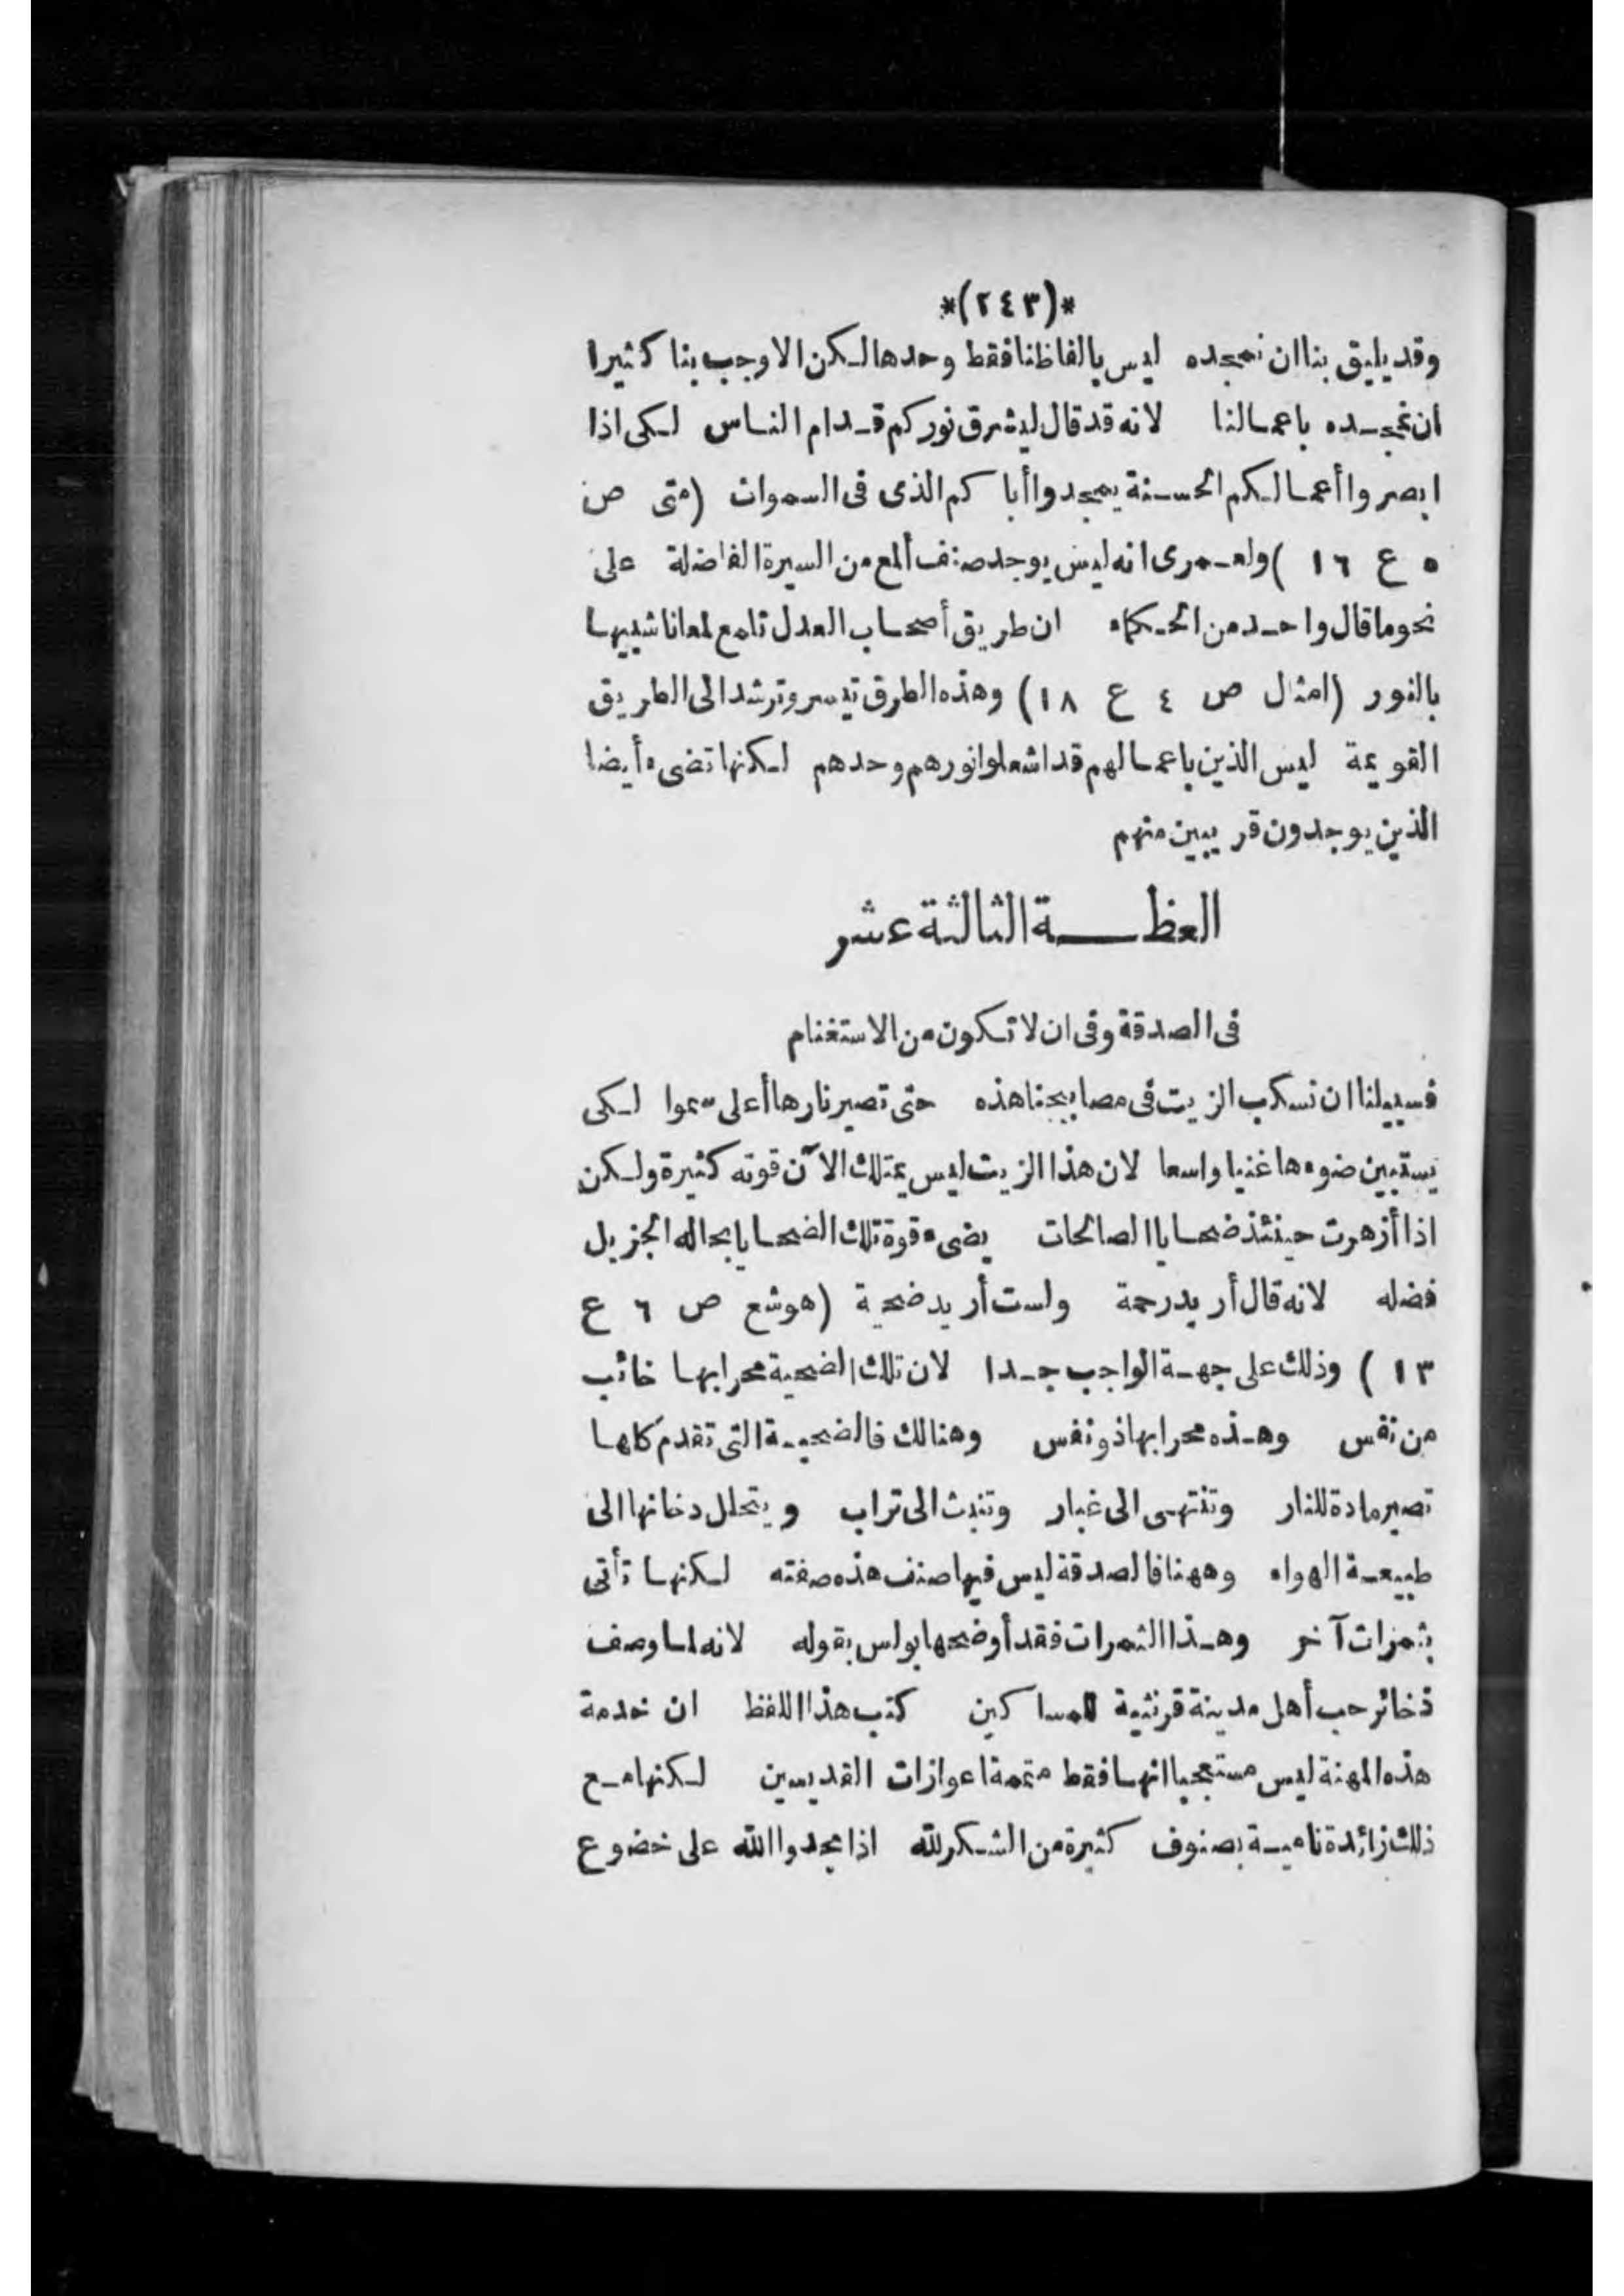 *(٢٤٣)*
وقد يليق بنا ان نمجده ليس بالفاظنا فقط وحدها لكن الاوجب بنا كثيرا
ان نمجده باعمالنا لانه قد قال ليشرق نوركم قدام الناس لكى اذا
ابصروا أعمالكم الحسنة يمجدوا أباكم الذى فى السموات (متى ص
٥ ع ١٦ ) ولعمرى انه ليس يوجد صنف ألمع من السيرة الفاضلة على
نحو ما قال واحد من الحكماء ان طريق أصحاب العدل تلمع لمعانا شبيها
بالنور (امثال ص ٤ ع ١٨) وهذه الطرق تيسر وترشد الى الطريق
القويمة ليس الذين باعمالهم قد اشعلوا نورهم وحدهم لكنها تضىء أيضا
الذين يوجدون قريبين منهم
العظة الثالثة عشر
فى الصدقة وفى ان لا تكون من الاستغنام
فسبيلنا ان نسكب الزيت فى مصابيحنا هذه حتى تصير نارها أعلى سموا لكى
يستبين ضوءها غنيا واسعا لان هذا الزيت ليس يمتلك الآن قوته كثيرة ولكن
اذا أزهرت حينئذ ضحايا الصالحات يضىء قوة تلك الضحايا بحاله الجزيل
فضله لانه قال أريد رحمة ولست أريد ضحية (هوشع ص ٦ ع
١٣ ) وذلك على جهة الواجب جدا لان تلك الضحية محرابها خائب
من نفس وهذه محرابها ذو نفس وهنالك فالضحية التى تقدم كلها
تصير مادة للنار وتنتهى الى غبار وتنبث الى تراب ويتحلل دخانها الى
طبيعة الهواء وههنا فالصدقة ليس فيها صنف هذه صفته لكنها تأتى
بثمرات آخر وهذا الثمرات فقد أوضحها بولس بقوله لانه لما وصف
ذخائر حب أهل مدينة قرنثية للمساكين كتب هذا اللفظ ان خدمة
هذه المهنة ليس مستعجبا انها فقط متممة اعوازات القديسين لكنها مع
ذلك زائدة نامية بصنوف كثيرة من الشكر لله اذا مجدوا الله على خضوع